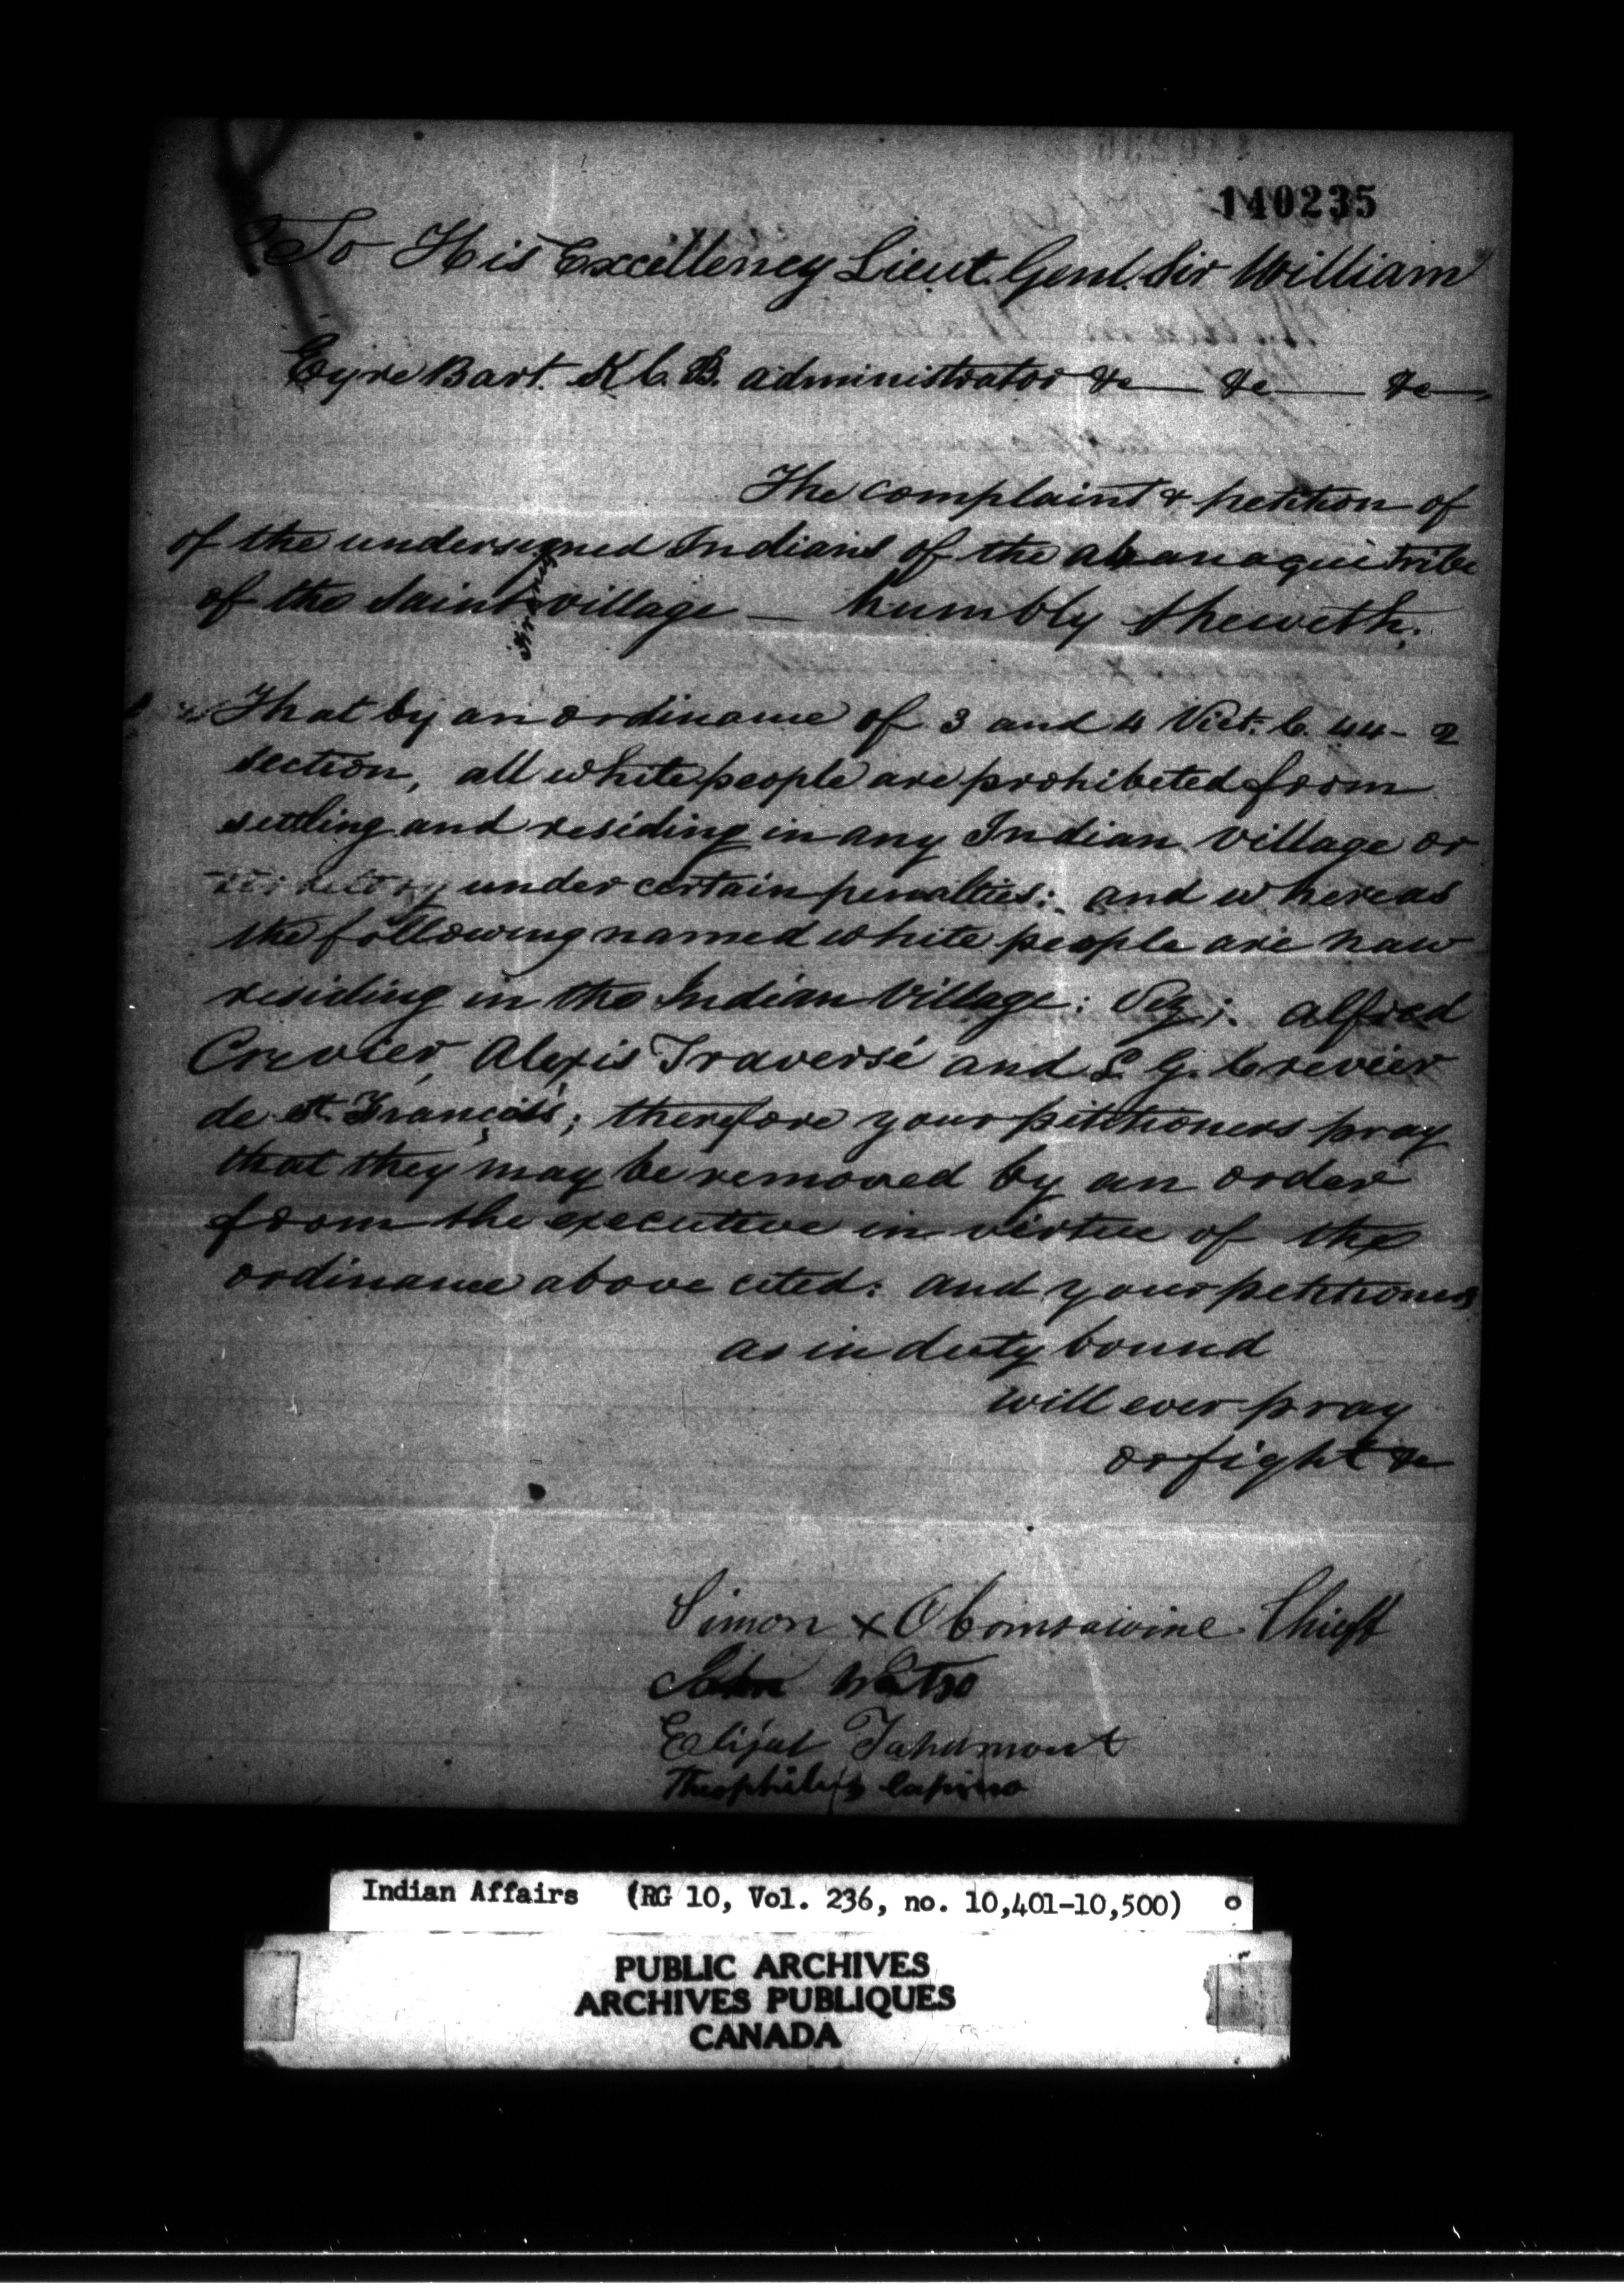 140235
To His Excellency Lieut. Genl. Sir William
Eyre Bart. K.C.B. administrator &c — &c — &c —,
The complaint & petition of
of the undersigned Indians of the abanaqui tribe
of the Saint francis village — humbly sheweth;
That by an ordinance of 3 and 4 Vict: C. 44 - 2
section, all white people are prohibeted from
settling and residing in any Indian village or
territory under certain penalties: and whereas
the following named white people are now
residing in the Indian Village: Viz; alfred
Crevier, Alexis Traversé and L. G. Crevier
de St. François; therefore your petitioners pray
that they may be removed by an order
from the executive in virtue of the
ordinance above cited: and your petitioners
as in duty bound
will ever pray
or fight &c
Simon x Obomsawine Chieff
John Watso
Elijah Tahamont
Theophilus
Indian Affairs (RG 10, Vol. 236, no. 10,401-10,500)
PUBLIC ARCHIVES
ARCHIVES PUBLIQUES
CANADA